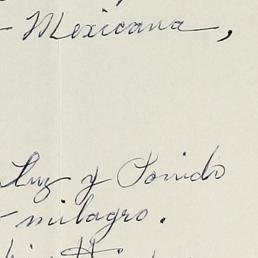 - Mexicana,
Luz y Sonido
- milagro.